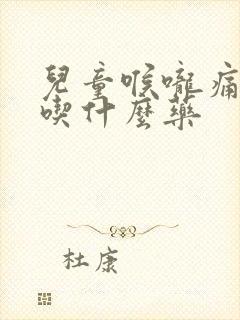 兒童喉嚨痛
喫什麼藥
杜康